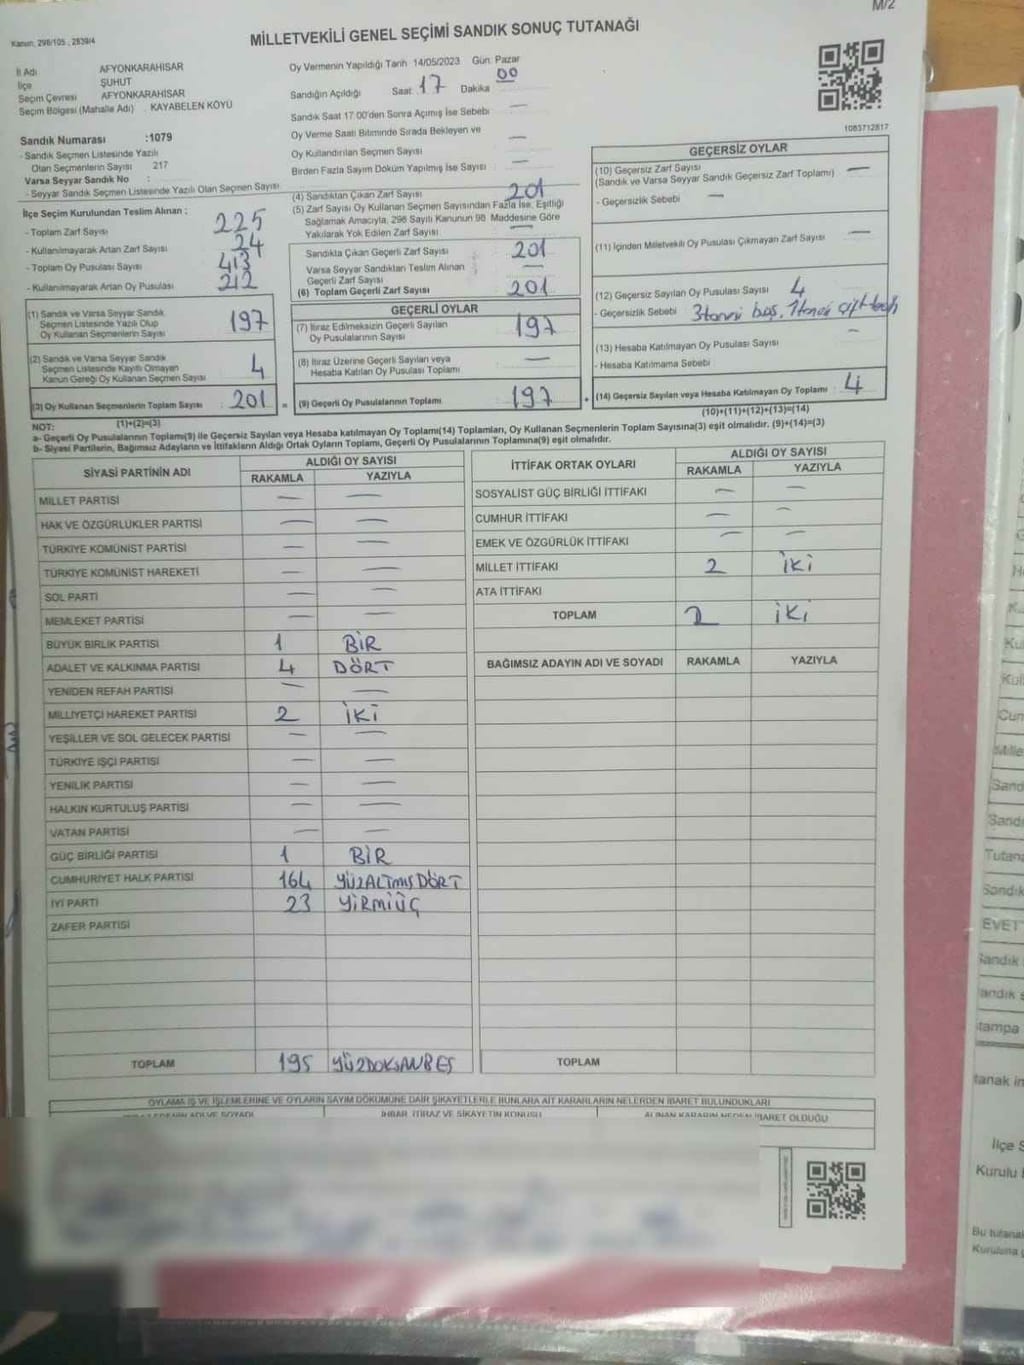 M/2
Kanun, 298/105 , 2839/4
MİLLETVEKİLİ GENEL SEÇİMİ SANDIK SONUÇ TUTANAĞI
İl Adı AFYONKARAHİSAR
İlçe ŞUHUT
Seçim Çevresi AFYONKARAHİSAR
Seçim Bölgesi (Mahalle Adı) . KAYABELEN KÖYÜ
Sandık Numarası :1079
- Sandık Seçmen Listesinde Yazılı
Olan Seçmenlerin Sayısı 217
Varsa Seyyar Sandık No :
- Seyyar Sandık Seçmen Listesinde Yazılı Olan Seçmen Sayısı
İlçe Seçim Kurulundan Teslim Alınan :
- Toplam Zarf Sayısı : 225
- Kullanılmayarak Artan Zarf Sayısı : 24
- Toplam Oy Pusulası Sayısı : 413
- Kullanılmayarak Artan Oy Pusulası : 212
(1) Sandık ve Varsa Seyyar Sandık
Seçmen Listesinde Yazılı Olup
Oy Kullanan Seçmenlerin Sayısı : 197
(2) Sandık ve Varsa Seyyar Sandık
Seçmen Listesinde Kayıtlı Olmayan
Kanun Gereği Oy Kullanan Seçmen Sayısı : 4
(3) Oy Kullanan Seçmenlerin Toplam Sayısı : 201
(1)+(2)=(3)
Oy Vermenin Yapıldığı Tarih 14/05/2023 Gün: Pazar
Sandığın Açıldığı Saat: 17 Dakika 00
Sandık Saat 17 00'den Sonra Açımış İse Sebebi —
Oy Verme Saati Bitiminde Sırada Bekleyen ve
Oy Kullandırılan Seçmen Sayısı —
Birden Fazla Sayım Döküm Yapılmış İse Sayısı —
(4) Sandıktan Çıkan Zarf Sayısı 201
(5) Zarf Sayısı Oy Kullanan Seçmen Sayısından Fazla İse, Eşitliği
Sağlamak Amacıyla, 298 Sayılı Kanunun 98. Maddesine Göre
Yakılarak Yok Edilen Zarf Sayısı —
Sandıkta Çıkan Geçerli Zarf Sayısı 201
Varsa Seyyar Sandıktan Teslim Alınan
Geçerli Zarf Sayısı —
(6) Toplam Geçerli Zarf Sayısı 201
GEÇERLİ OYLAR
(7) İtiraz Edilmeksizin Geçerli Sayılan
Oy Pusulalarının Sayısı 197
(8) İtiraz Üzerine Geçerli Sayılan veya
Hesaba Katılan Oy Pusulası Toplamı —
= (9) Geçerli Oy Pusulalarının Toplamı 197
1083712817
GEÇERSİZ OYLAR
(10) Geçersiz Zarf Sayısı —
(Sandık ve Varsa Seyyar Sandık Geçersiz Zarf Toplamı)
- Geçersizlik Sebebi —
(11) İçinden Milletvekili Oy Pusulası Çıkmayan Zarf Sayısı —
(12) Geçersiz Sayılan Oy Pusulası Sayısı 4
- Geçersizlik Sebebi 3tanesi boş, 1tanesi çift
(13) Hesaba Katılmayan Oy Pusulası Sayısı —
- Hesaba Katılmama Sebebi
+ (14) Geçersiz Sayılan veya Hesaba Katılmayan Oy Toplamı 4
(10)+(11)+(12)+(13)=(14)
NOT:
a- Geçerli Oy Pusulalarının Toplamı(9) ile Geçersiz Sayılan veya Hesaba katılmayan Oy Toplamı(14) Toplamları, Oy Kullanan Seçmenlerin Toplam Sayısına(3) eşit olmalıdır. (9)+(14)=(3)
b- Siyasi Partilerin, Bağımsız Adayların ve İttifakların Aldığı Ortak Oyların Toplamı, Geçerli Oy Pusulalarının Toplamına(9) eşit olmalıdır.
SİYASİ PARTİNİN ADI ALDIĞI OY SAYISI
RAKAMLA YAZIYLA
MİLLET PARTİSİ — —
HAK VE ÖZGÜRLÜKLER PARTİSİ — —
TÜRKİYE KOMÜNİST PARTİSİ — —
TÜRKİYE KOMÜNİST HAREKETİ — —
SOL PARTİ — —
MEMLEKET PARTİSİ — —
BÜYÜK BİRLİK PARTİSİ 1 BİR
ADALET VE KALKINMA PARTİSİ 4 DÖRT
YENİDEN REFAH PARTİSİ — —
MİLLİYETÇİ HAREKET PARTİSİ 2 İKİ
YEŞİLLER VE SOL GELECEK PARTİSİ — —
TÜRKİYE İŞÇİ PARTİSİ — —
YENİLİK PARTİSİ — —
HALKIN KURTULUŞ PARTİSİ — —
VATAN PARTİSİ — —
GÜÇ BİRLİĞİ PARTİSİ 1 BİR
CUMHURİYET HALK PARTİSİ 164 YÜZALTMIŞDÖRT
İYİ PARTİ 23 YİRMİÜÇ
ZAFER PARTİSİ
TOPLAM 195 YÜZDOKSANBEŞ
İTTİFAK ORTAK OYLARI ALDIĞI OY SAYISI
RAKAMLA YAZIYLA
SOSYALİST GÜÇ BİRLİĞİ İTTİFAKI — —
CUMHUR İTTİFAKI — —
EMEK VE ÖZGÜRLÜK İTTİFAKI — —
MİLLET İTTİFAKI 2 İKİ
ATA İTTİFAKI
TOPLAM 2 İKİ
BAĞIMSIZ ADAYIN ADI VE SOYADI RAKAMLA YAZIYLA
TOPLAM
OYLAMA İŞ VE İŞLEMLERİNE VE OYLARIN SAYIM DÖKÜMÜNE DAİR ŞİKAYETLERLE BUNLARA AİT KARARLARIN NELERDEN İBARET BULUNDUKLARI
İHBAR, İTİRAZ VE ŞİKAYETİN KONUSU ALINAN KARARIN NEDEN İBARET OLDUĞU
Cum
Mille
Sand
Sandı
Tutana
Sandık
EVET
Sandık
tanak
İlçe S
Kurulu
Bu tutanak
Kuruluna